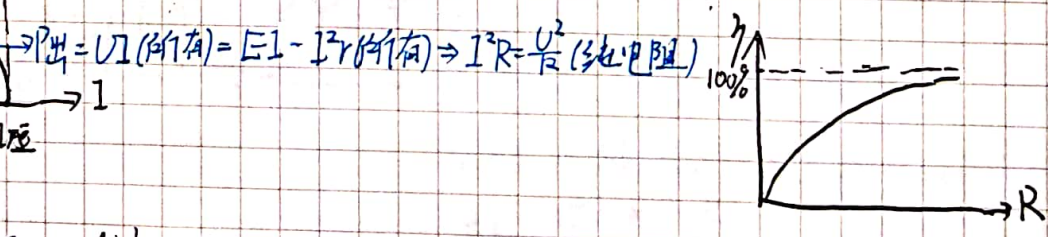 →P出=UI(所有)=EI-I²r(所有)⇒I²R=U²/R(纯电阻)
η
100%
→I
R